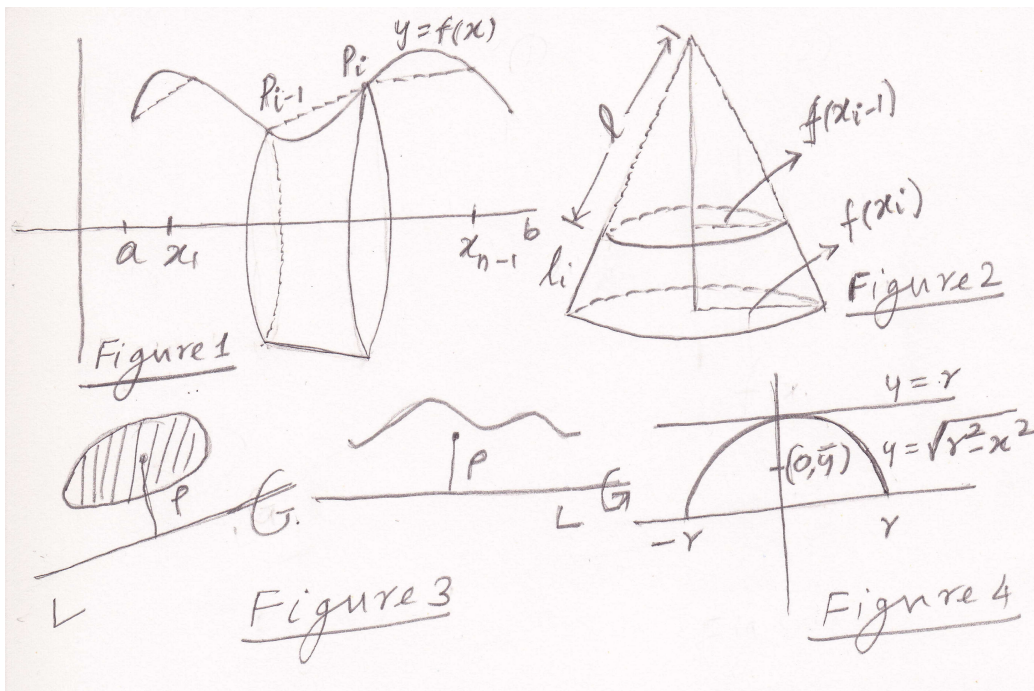 y = f(x)
P_i
P_{i-1}
a x_1 x_{n-1} b
Figure 1
l
f(x_{i-1})
f(x_i)
l_i
Figure 2
ρ
L
ρ
L
Figure 3
y = r
(0, ȳ) y = √r²-x²
-r r
Figure 4